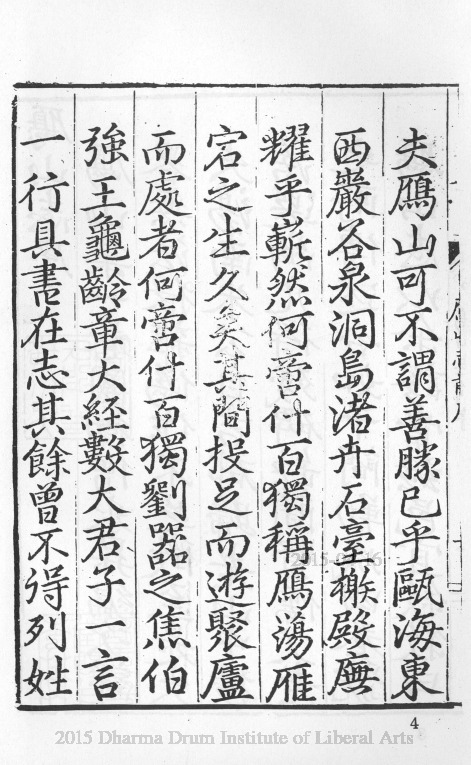 夫鴈山可不謂善勝已乎甌海東
西巖谷泉洞島渚卉石臺榭殿廡
耀乎嶄然何啻什百獨稱鴈蕩雁
宕之生久矣其間投足而遊聚廬
而處者何啻什百獨劉器之焦伯
強王龜齡章大經數大君子一言
一行具書在志其餘曾不得列姓
4
2015 Dharma Drum Institute of Liberal Arts